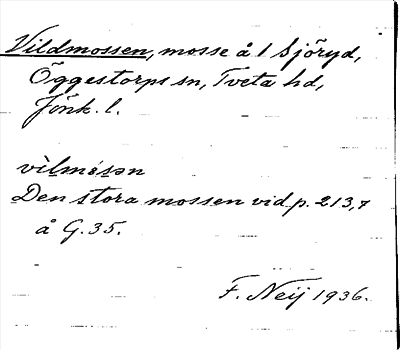 Vildmossen, mosse å 1 Sjöryd,
Öggestorps sn, Tveta hd,
Jönk. l.
vìlmósən
Den stora mossen vid p. 213,7
å G. 35.
F. Neij 1936.